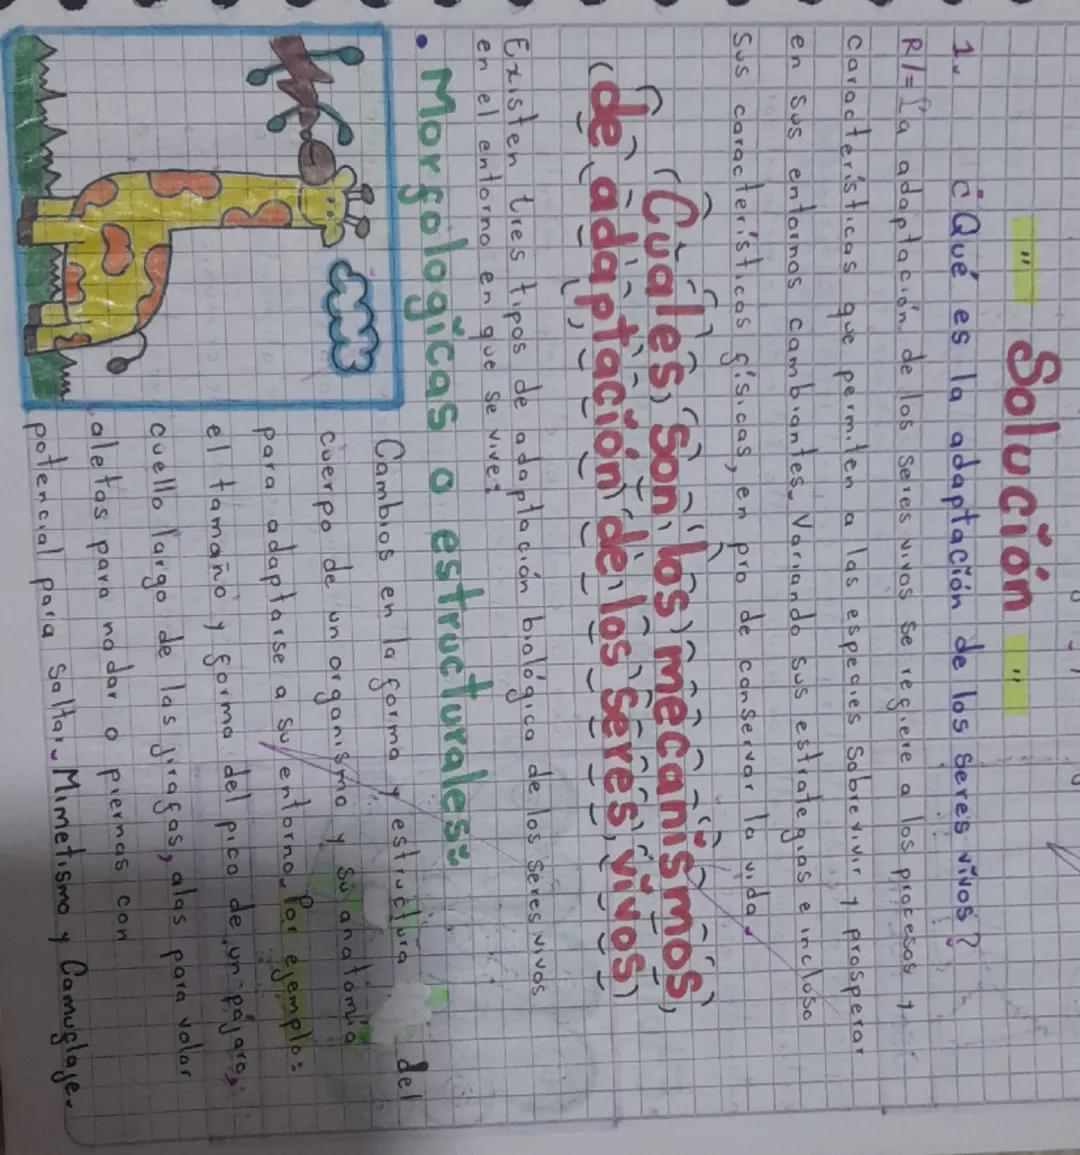 " Solución "
1. ¿Qué es la adaptación de los seres vivos?
R/= La adaptación de los seres vivos se refiere a los procesos y
características que permiten a las especies sobrevivir y prosperar
en sus entornos cambiantes. Variando sus estrategias e incluso
sus características físicas, en pro de conservar la vida.
Cuales son los mecanismos
de adaptación de los seres vivos
Existen tres tipos de adaptación biológica de los seres vivos
en el entorno en que se vive:
• Morfologicas o estructurales:
Cambios en la forma y estructura del
cuerpo de un organismo y su anatomía
para adaptarse a su entorno. Por ejemplo:
el tamaño y forma del pico de un pájaro,
cuello largo de las jirafas, alas para volar
aletas para nadar o piernas con
potencial para saltar. Mimetismo y Camuflaje.